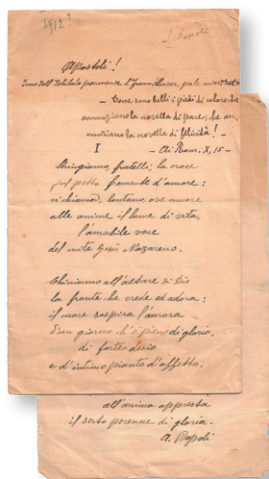 1912?
Apostoli!
Inno dell'Istituto parmense
– Come sono belli i piedi di coloro che
annunziano la novella di pace, che an,
nunziano la novella di felicità! –
I – Ai Rom. X, 15 –
Stringiamo, fratelli, la croce
sul petto fremente d'amore:
ci chiama, lontano, ove muore
alle anime il lume di vita,
l'amabile voce
del mite Gesù Nazareno.
Chiniamo all'altare di Dio
la fronte che crede ed adora:
il cuore sospira l'aurora
d'un giorno ch'è pieno di gloria,
di forte desio
e d'intimo pianto d'affetto.
all'anima oppressa
il serto perenne di gloria.
A. Popoli